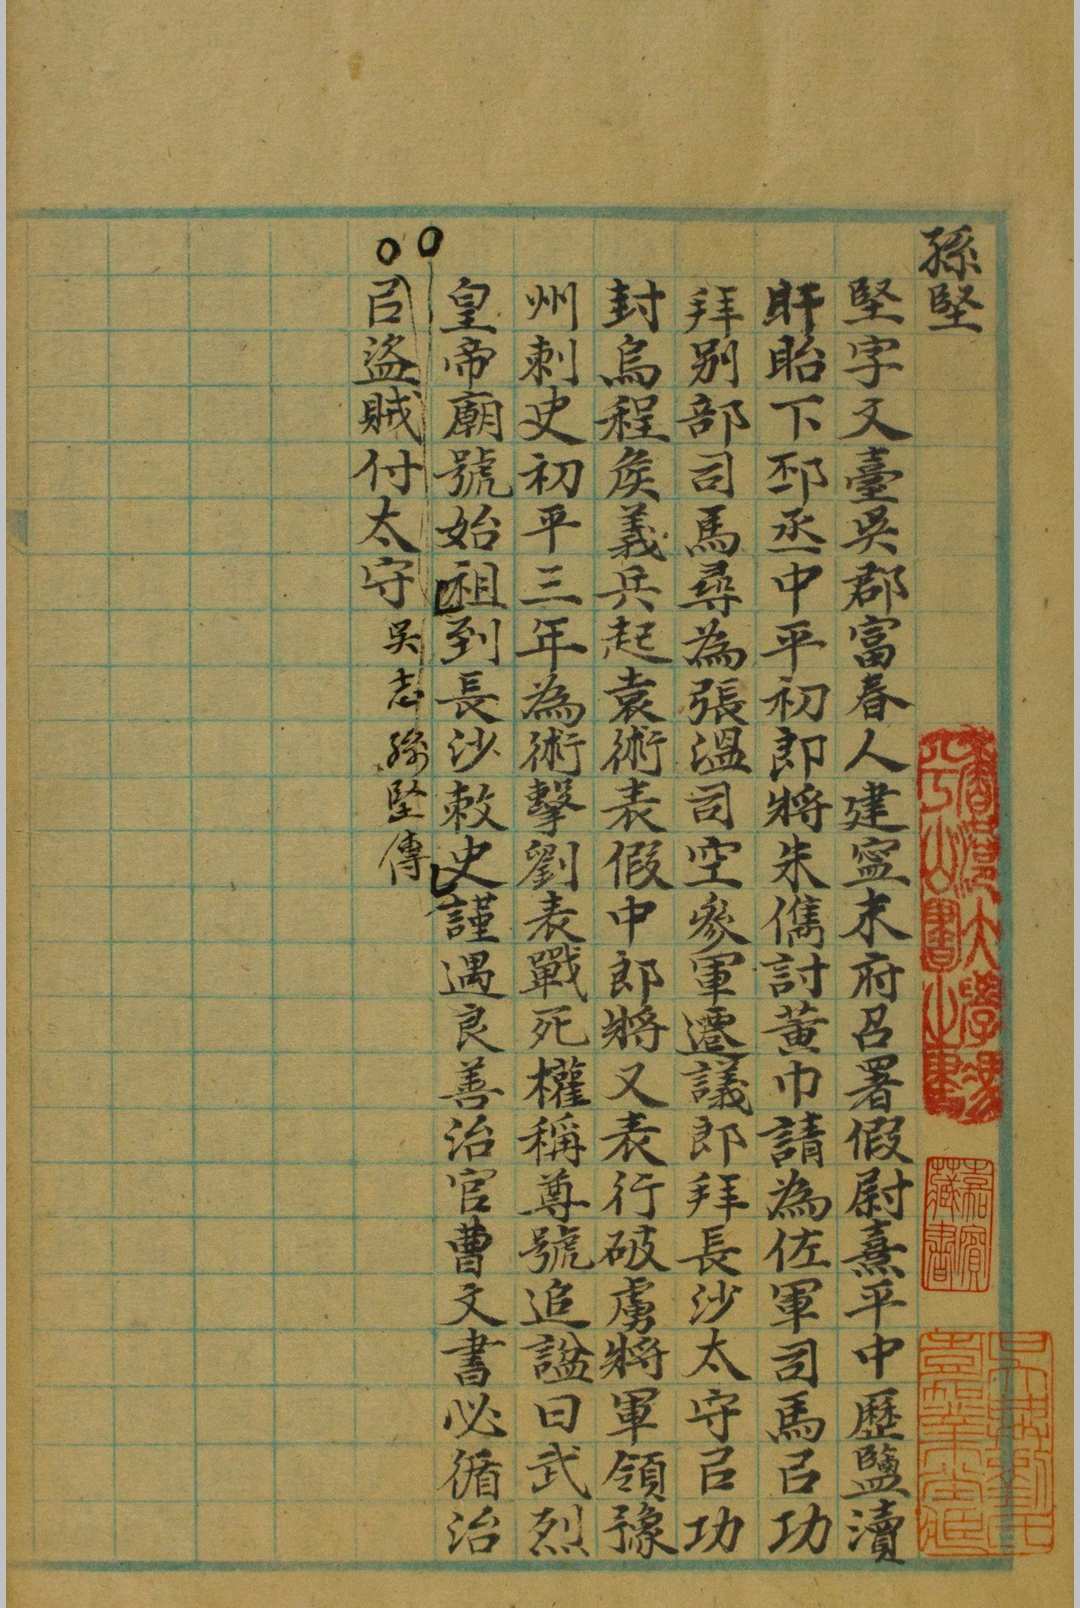 孫堅
堅字文臺吳郡富春人建寍末府召署假尉熹平中歷鹽瀆
盱眙下邳丞中平初郎將朱儁討黃巾請為佐軍司馬㠯功
拜別部司馬尋為張溫司空參軍遷議郎拜長沙太守㠯功
封烏程侯義兵起袁術表假中郎將又表行破虜將軍領豫
州刺史初平三年為術擊劉表戰死權稱尊號追諡曰武烈
皇帝廟號始祖到長沙敕史謹遇良善治官曹文書必循治
㠯盜賊付太守吳志孫堅傳
嘉賓藏書